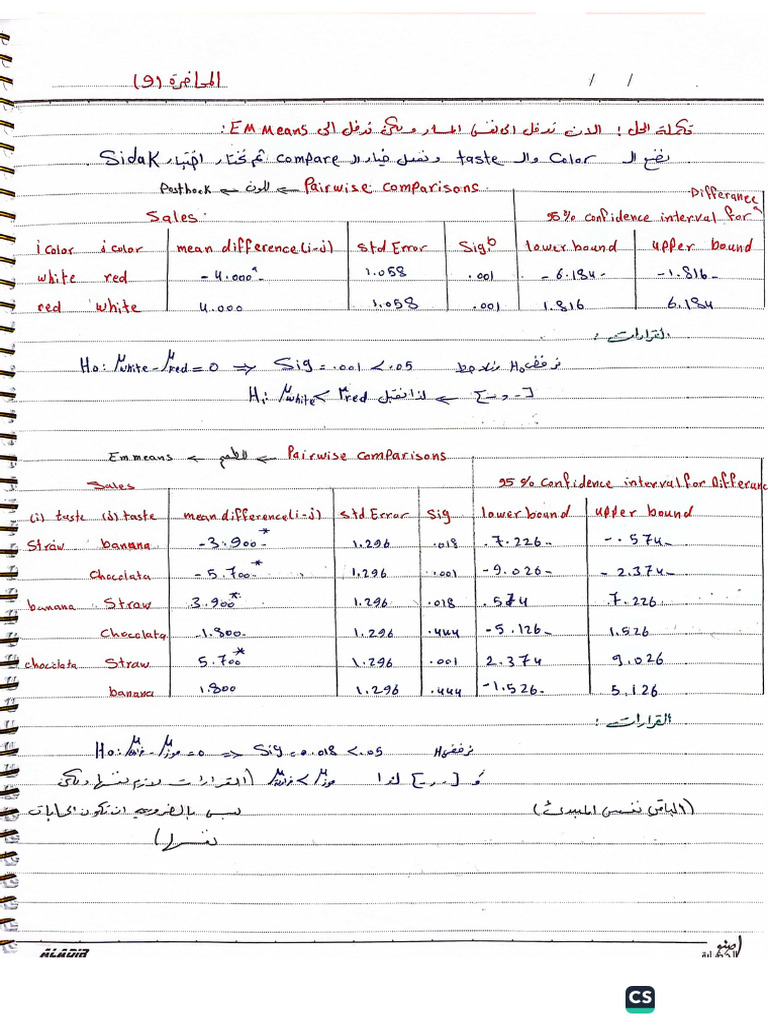 المحاضرة (9)
/ /
تكملة الحل : الان ندخل الى نفس المسار ولكن ندخل الى EM Means :
نضع الـ Color والـ taste ونعمل خيار الـ compare ثم نختار اختبار Sidak.
Posthock ← للون ← Pairwise comparisons.
Sales. 95% confidence interval for Differance
i color j color mean difference (i-j) Std Error Sig.b lower bound upper bound
white red -4.000* 1.058 .001 -6.184- -1.816-
red white 4.000 1.058 .001 1.816 6.184
القرارات :
Ho: μwhite - μred = 0 ⇒ Sig = .001 < .05 نرفض Ho ونلاحظ
[- و -] ← لذا نقبل H1: μwhite < μred
Emmeans ← للطعم ← Pairwise comparisons
Sales 95% Confidence interval for Differance
(i) taste (j) taste mean difference (i-j) Std Error Sig lower bound upper bound
Straw banana -3.900-* 1.296 .018 .7.226- -.574-
Chocolata -5.700-* 1.296 .001 -9.026- -2.374-
banana Straw 3.900* 1.296 .018 .574 7.226
Chocolata -1.800- 1.296 .444 -5.126- 1.526
chocolata Straw 5.700* 1.296 .001 2.374 9.026
banana 1.800 1.296 .444 -1.526- 5.126
القرارات :
Ho: μفراولة - μموز = 0 ⇒ Sig = 0.018 < .05 نرفض Ho
و [- و -] لذا μفراولة < μموز (القرارات لازم نفسها ولكن
ليس بالضرورة ان تكون الحسابات
نفسها)
(الباقي نفس المبدئ)
ALADIB
CS